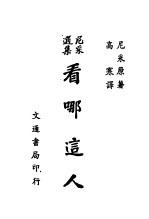 尼采原著
高寒譯
尼采選集
看哪這人
文通書局印行